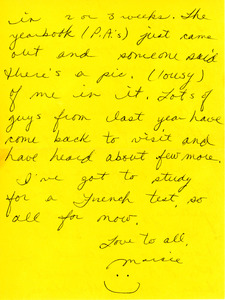 in 2 or 3 weeks. The
yearbook (P.A.'s) just came
out and someone said
there's a pic. (lousy)
of me in it. Lots of
guys from last year have
come back to visit and
have heard about few more.
I've got to study
for a French test, so
all for now.
Love to all,
Marsie